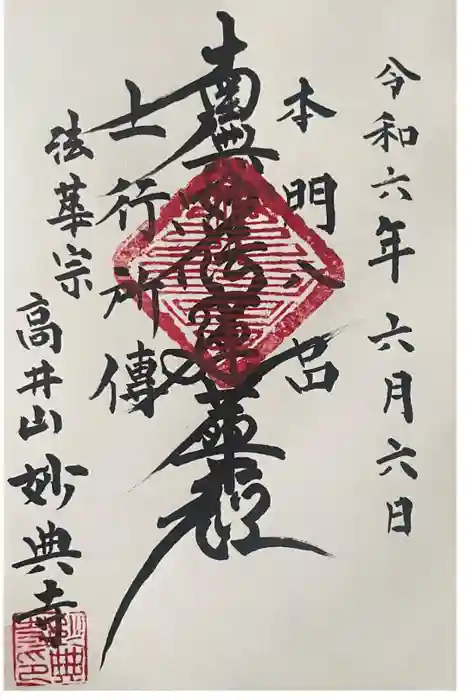 令和六年 六月六日
本門八品
南無妙法蓮華經
上行所傳
法華宗
高井山 妙典寺